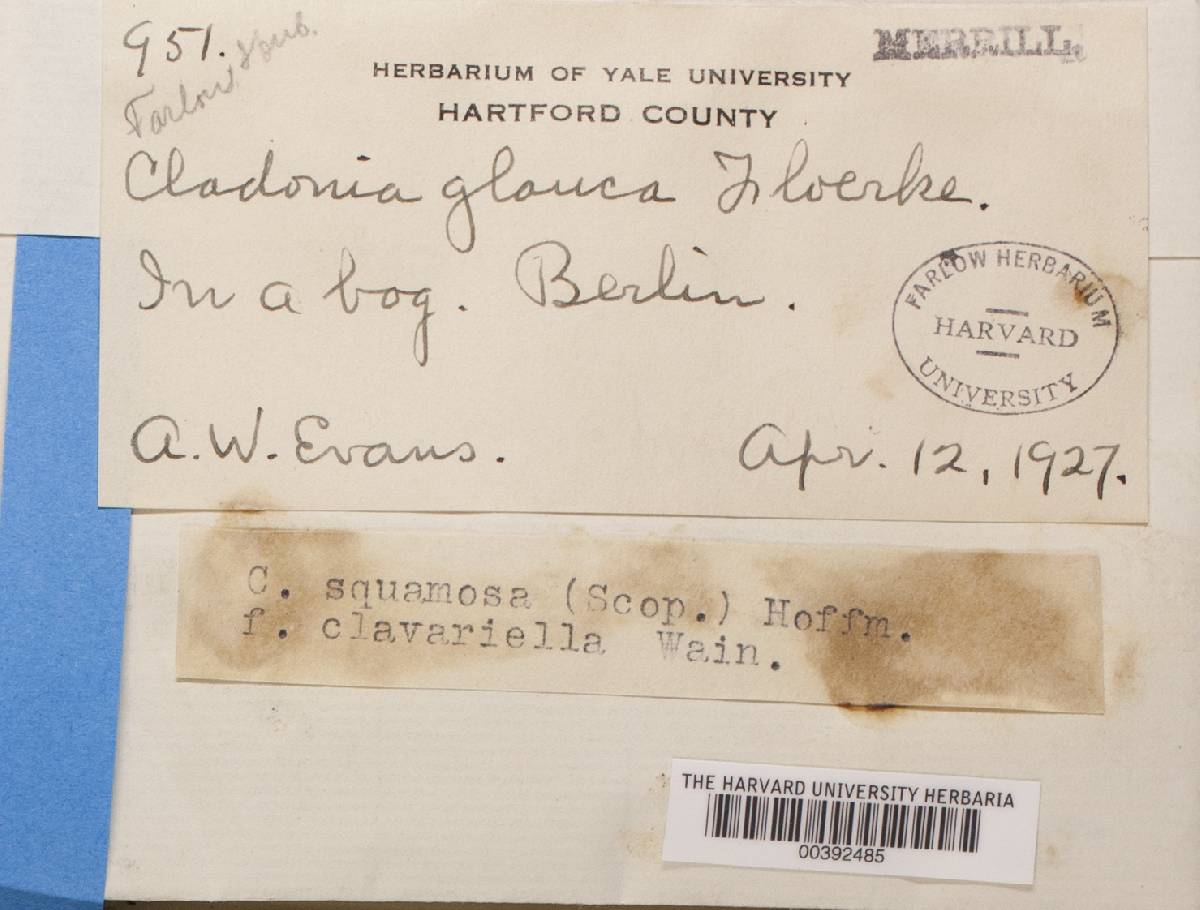 951.
Farlow
MERRILL.
HERBARIUM OF YALE UNIVERSITY
HARTFORD COUNTY
Cladonia glauca Floerke.
In a bog. Berlin.
FARLOW HERBARIUM
HARVARD
UNIVERSITY
A.W. Evans. Apr. 12, 1927.
C. squamosa (Scop.) Hoffm.
f. clavariella Wain.
THE HARVARD UNIVERSITY HERBARIA
00392485